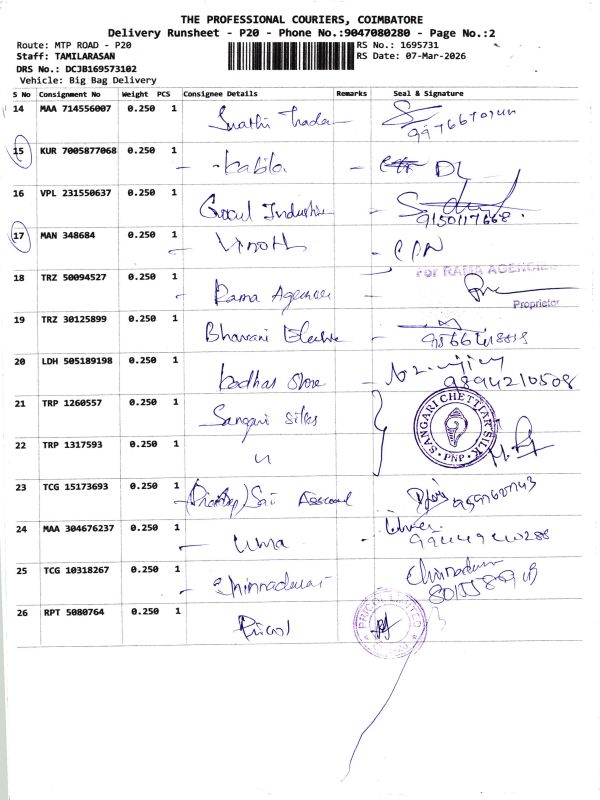 THE PROFESSIONAL COURIERS, COIMBATORE
Delivery Runsheet - P20 - Phone No.:9047080280 - Page No.:2
Route: MTP ROAD - P20
RS No.: 1695731
Staff: TAMILARASAN
RS Date: 07-Mar-2026
DRS No.: DCJB169573102
Vehicle: Big Bag Delivery
S No Consignment No Weight PCS Consignee Details Remarks Seal & Signature
14 MAA 714556007 0.250 1
15 KUR 7005877068 0.250 1 - Kabila - DL
16 VPL 231550637 0.250 1 Gocul Industries - 9150117668.
17 MAN 348684 0.250 1 - Vinoth -
For RAMA AGENCIES
18 TRZ 50094527 0.250 1 - Rama Agencies -
Proprietor
19 TRZ 30125899 0.250 1 Bhavani Electric -
20 LDH 505189198 0.250 1 - Store - 9894210508
21 TRP 1260557 0.250 1 Sangari Silks
SANGARI CHETTIAR SILK PNP
22 TRP 1317593 0.250 1 "
23 TCG 15173693 0.250 1 (Pradeep) Sri
24 MAA 304676237 0.250 1 - Uma - Uma
25 TCG 10318267 0.250 1 - Chinnadurai Chinnadurai
26 RPT 5080764 0.250 1 Pricol
PRICOL LIMITED